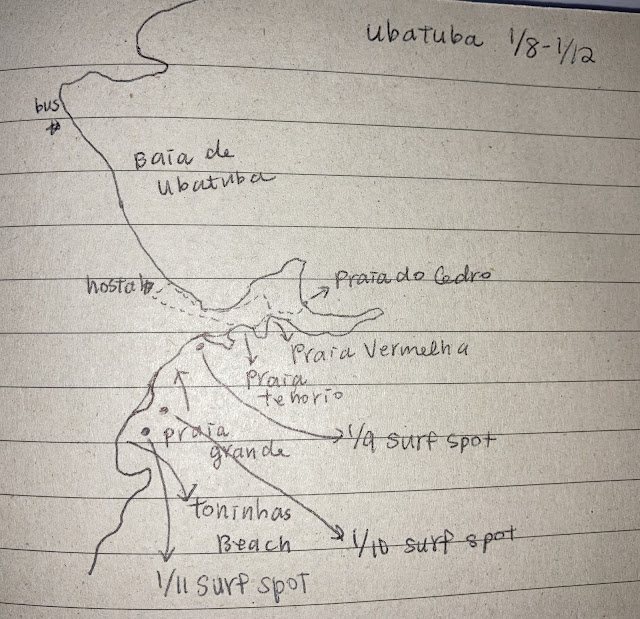 Ubatuba 1/8-1/12
bus
Baía de
Ubatuba
hostal
Praia do Cedro
Praia Vermelha
Praia
tehorio
1/9 surf spot
praia
grande
Toninhas
Beach
1/10 surf spot
1/11 surf spot